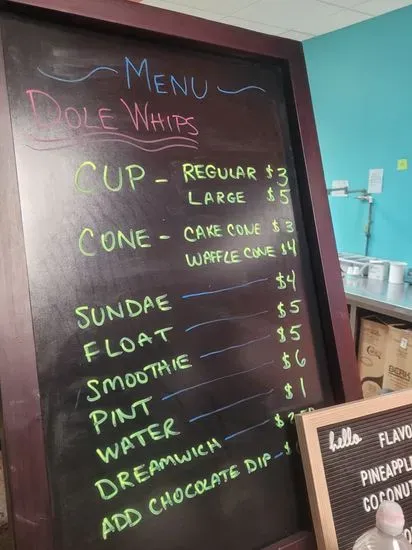 MENU
DOLE WHIPS
CUP - REGULAR $3
LARGE $5
CONE - CAKE CONE $3
WAFFLE CONE $4
SUNDAE $4
FLOAT $5
SMOOTHIE $5
PINT $6
WATER $1
DREAMWICH
ADD CHOCOLATE DIP - $
hello
PINEAPPLE
COCONUT